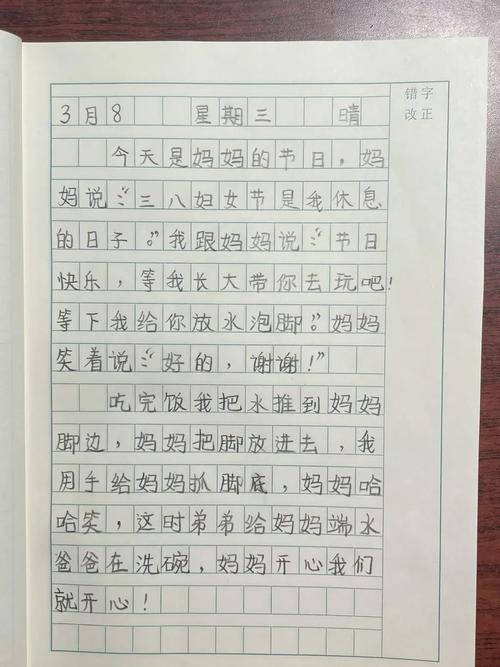 错字
改正
3月8 星期三 晴
今天是妈妈的节日，妈
妈说："三八妇女节是我休息
的日子。"我跟妈妈说："节日
快乐，等我长大带你去玩吧！
等下我给你放水泡脚。"妈妈
笑着说："好的，谢谢！"
吃完饭我把水推到妈妈
脚边，妈妈把脚放进去，我
用手给妈妈抓脚底，妈妈哈
哈笑，这时弟弟给妈妈端水
爸爸在洗碗，妈妈开心我们
就开心！